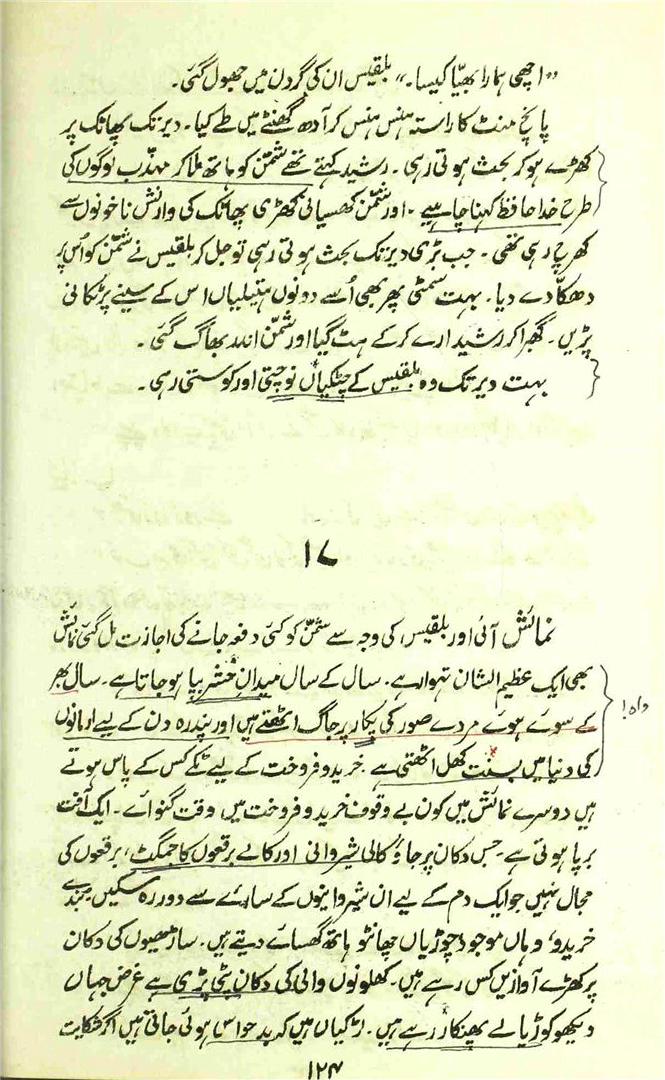 "اچھی ہمارا بھیّا کیسا۔" بلقیس ان کی گردن میں جھول گئی۔
پانچ منٹ کا راستہ ہنس ہنس کر آدھ گھنٹے میں طے کیا۔ دیر تک پھاٹک پر
کھڑے ہو کر بحث ہوتی رہی۔ رشید کہتے تھے شمّن کو ہاتھ ملا کر مہذّب لوگوں کی
طرح خدا حافظ کہنا چاہیے۔ اور شمّن کھسیانی کھڑی پھاٹک کی وارنش ناخونوں سے
کھرچ رہی تھی۔ جب بڑی دیر تک بحث ہوتی رہی تو جل کر بلقیس نے شمّن کو اُس پر
دھکّا دے دیا۔ بہت سمٹی پھر بھی اُسے دونوں ہتیلیاں اس کے سینے پر ٹکانی
پڑیں۔ گھبرا کر رشید ارے کر کے ہٹ گیا اور شمّن اندر بھاگ گئی۔
بہت دیر تک وہ بلقیس کے چٹکیاں نوچتی اور کوستی رہی۔
۱۷
نمائش آئی اور بلقیس، کی وجہ سے شمّن کو کئی دفعہ جانے کی اجازت مل گئی نمائش
بھی ایک عظیم الشان تہوار ہے۔ سال کے سال میدانِ حشر بپا ہو جاتا ہے۔ سال بھر
کے سوئے ہوئے مردے صور کی پکار پر جاگ اٹھتے ہیں اور پندرہ دن کے لیے ارمانوں
واہ!
کی دنیا میں بسنت کھل اٹھتی ہے۔ خرید و فروخت کے لیے ٹکے کس کے پاس ہوتے
ہیں دوسرے نمائش میں کون بے وقوف خرید و فروخت میں وقت گنوائے۔ ایک آفت
برپا ہوتی ہے۔ جس دکان پر جاؤ کالی شیروانی اور کالے برقعوں کا جمگٹ، برقعوں کی
مجال نہیں جو ایک دم کے لیے ان شیروانیوں کے سائے سے دور رہ سکیں۔ بُندے
خریدو، وہاں موجود، چوڑیاں چھانٹو ہاتھ گھسائے دیتے ہیں۔ ساڑھیوں کی دکان
پر کھڑے آوازیں کس رہے ہیں۔ کھلونوں والی کی دکان پٹی پڑی ہے غرض جہاں
دیکھو کوڑیالے پھنکار رہے ہیں۔ لڑکیاں ہیں کہ بد حواس ہوئی جاتی ہیں اگر شکایت
۱۲۴